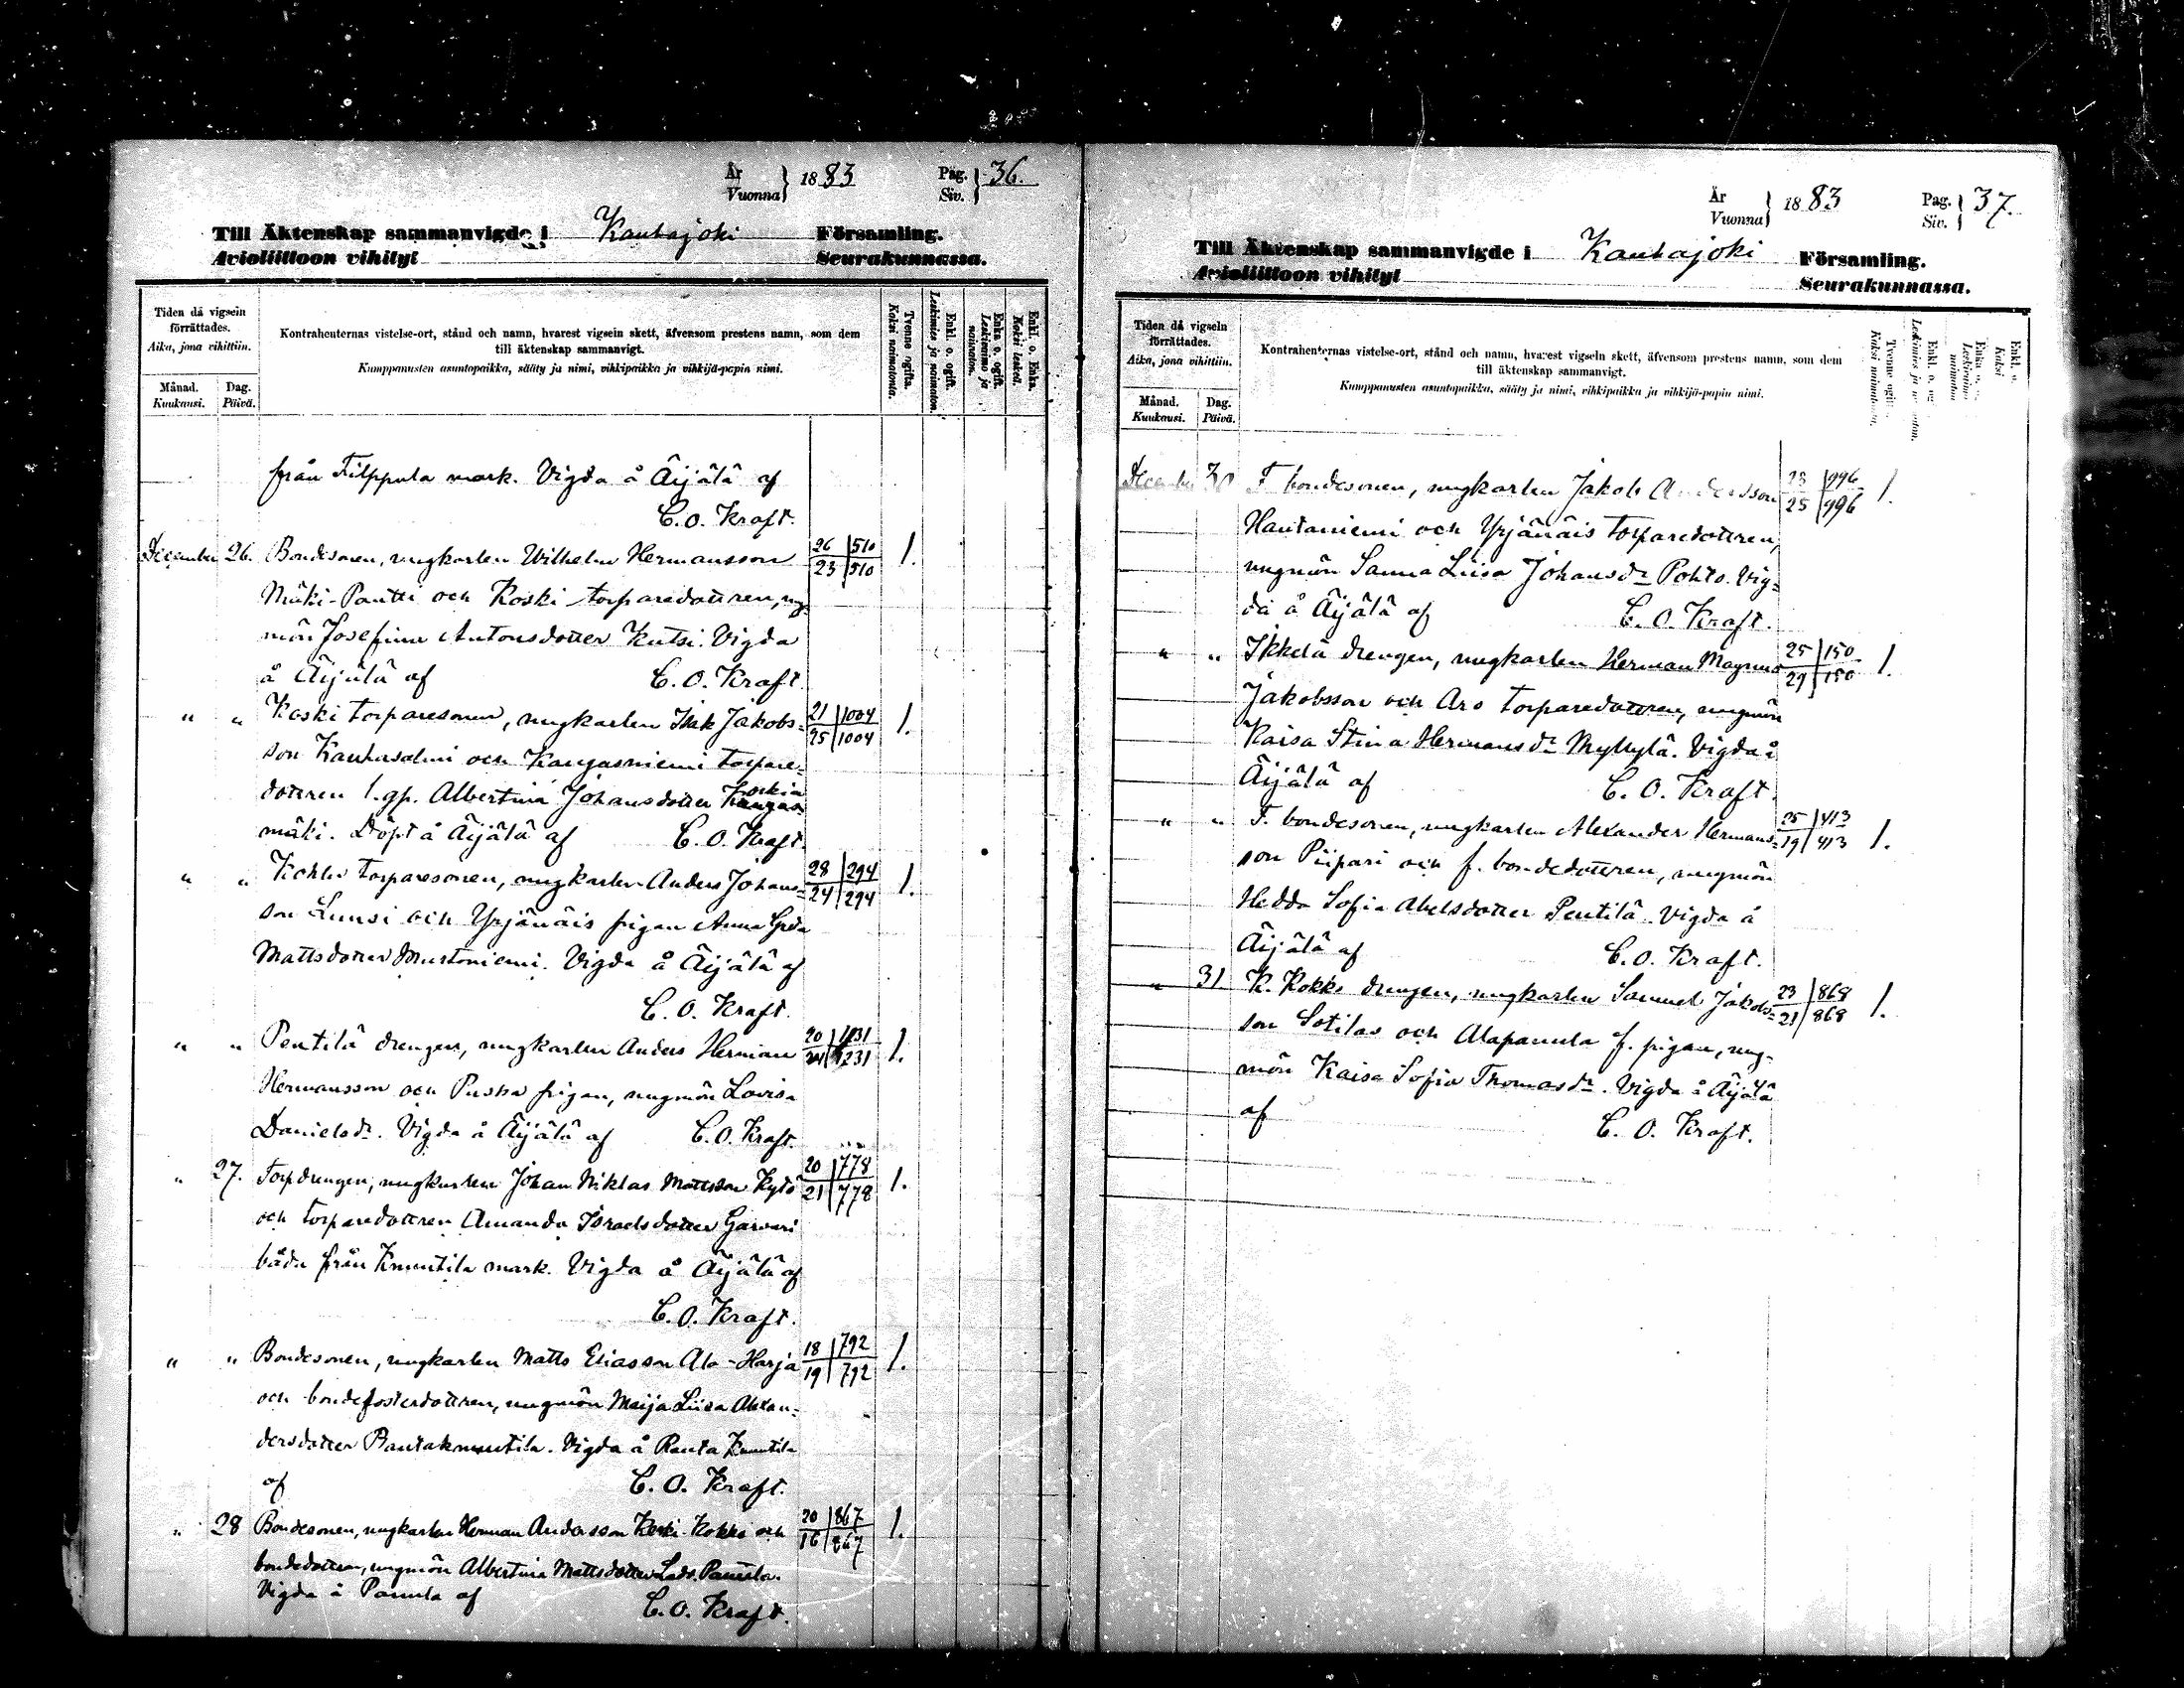 År
Vuonna } 1883 Pag.
Siv. } 36.
Till Äktenskap sammanvigde i Kauhajoki Församling.
Avioliittoon vihityt Seurakunnassa.
Tiden då vigseln
förrättades.
Aika, jona vihittiin.
Månad.
Kuukausi.
Dag.
Päivä.
Kontrahenternas vistelse-ort, stånd och namn, hvarest vigseln skett, äfvensom prestens namn, som dem
till äktenskap sammanvigt.
Kumppanusten asuntopaikka, sääty ja nimi, vihkipaikka ja vihkijä-papin nimi.
Tvenne ogifta.
Kaksi naimatonta.
Enkl. o. ogift.
Leskimies ja naimaton.
Enka o. ogift.
Leskivaimo ja
naimaton.
Enkl. o. Enka.
Kaksi leskeä.
från Filppula mark. Vigda å Äijälä af
C. O. Kraft.
December 26. Bondesonen, ungkarlen Wilhelm Hermansson 26 510 1.
23 510
Mäki-Pantti och Koski torparedottren, ung-
mön Josefina Antonsdotter Kutsi. Vigda
å Äijälä af C. O. Kraft.
" " Koski torparesonen, ungkarlen Isak Jakobs- 21 1004 1.
25 1004
son Kauhasalmi och Kangasniemi torpare-
dottren l. qp. Albertina Johansdotter
mäki. Döpt å Äijälä af C. O. Kraft.
" " torparesonen, ungkarlen Anders Johans- 28 294 1.
24 294
son Luusi och Yrjänäis pigan Anna Greta
Mattsdotter Mustoniemi. Vigda å Äijälä af
C. O. Kraft.
" " Pentilä drengen, ungkarlen Anders Herman 20 1.
1231
Hermansson och Puska pigan, ungmön Lovisa
Danielsdr. Vigda å Äijälä af C. O. Kraft.
" 27. Torpdrengen, ungkarlen Johan Niklas Mattsson Kytö 20 778 1.
21 778
och torparedottren Amanda Israelsdotter Garvari
båda från Knuutila mark. Vigda å Äijälä af
C. O. Kraft.
" " Bondesonen, ungkarlen Matts Eliasson Ala-Harja 18 792 1.
19 792
och bondefosterdottren, ungmön Maija Liisa Alexan-
dersdotter Rantaknuutila. Vigda å Ranta Knuutila
af C. O. Kraft.
" 28 Bondesonen, ungkarlen Herman Andersson Keski-Kokko och 20 867 1.
16 867
bondedottren, ungmön Albertina Mattsdotter Panula.
Vigda å Panula af C. O. Kraft.
År
Vuonna } 1883 Pag.
Siv. } 37.
Till Äktenskap sammanvigde i Kauhajoki Församling.
Avioliittoon vihityt Seurakunnassa.
Tiden då vigseln
förrättades.
Aika, jona vihittiin.
Månad.
Kuukausi.
Dag.
Päivä.
Kontrahenternas vistelse-ort, stånd och namn, hvarest vigseln skett, äfvensom prestens namn, som dem
till äktenskap sammanvigt.
Kumppanusten asuntopaikka, sääty ja nimi, vihkipaikka ja vihkijä-papin nimi.
December 30 F. bondesonen, ungkarlen Jakob Andersson 23 996 1.
25 996
Hautaniemi och Yrjänäis torparedottren,
ungmön Sanna Liisa Johansdr Pohto. Vig-
da å Äijälä af C. O. Kraft.
" " Ikkelä drengen, ungkarlen Herman Magnus 25 150 1.
29 150
Jakobsson och Aro torparedottren, ungmön
Kaisa Stina Hermansdr Myllylä. Vigda å
Äijälä af C. O. Kraft.
" " F. bondesonen, ungkarlen Alexander Hermans- 25 413 1.
19 413
son Piipari och f. bondedottren, ungmön
Hedda Sofia Abelsdotter Pentilä. Vigda å
Äijälä af C. O. Kraft.
" 31 K. Kokko drengen, ungkarlen Samuel Jakobs- 23 868 1.
21 868
son Sotilas och Alapanula f. pigan, ung-
mön Kaisa Sofia Thomasdr. Vigda å Äijälä
af C. O. Kraft.